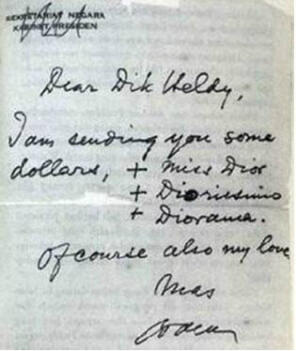 SEKRETARIAT NEGARA
KABINET PRESIDEN
Dear Dik Heldy,
I am sending you some
dollars, + Miss Dior
+ Diorissimo
+ Diorama.
Of course also my love
Mas